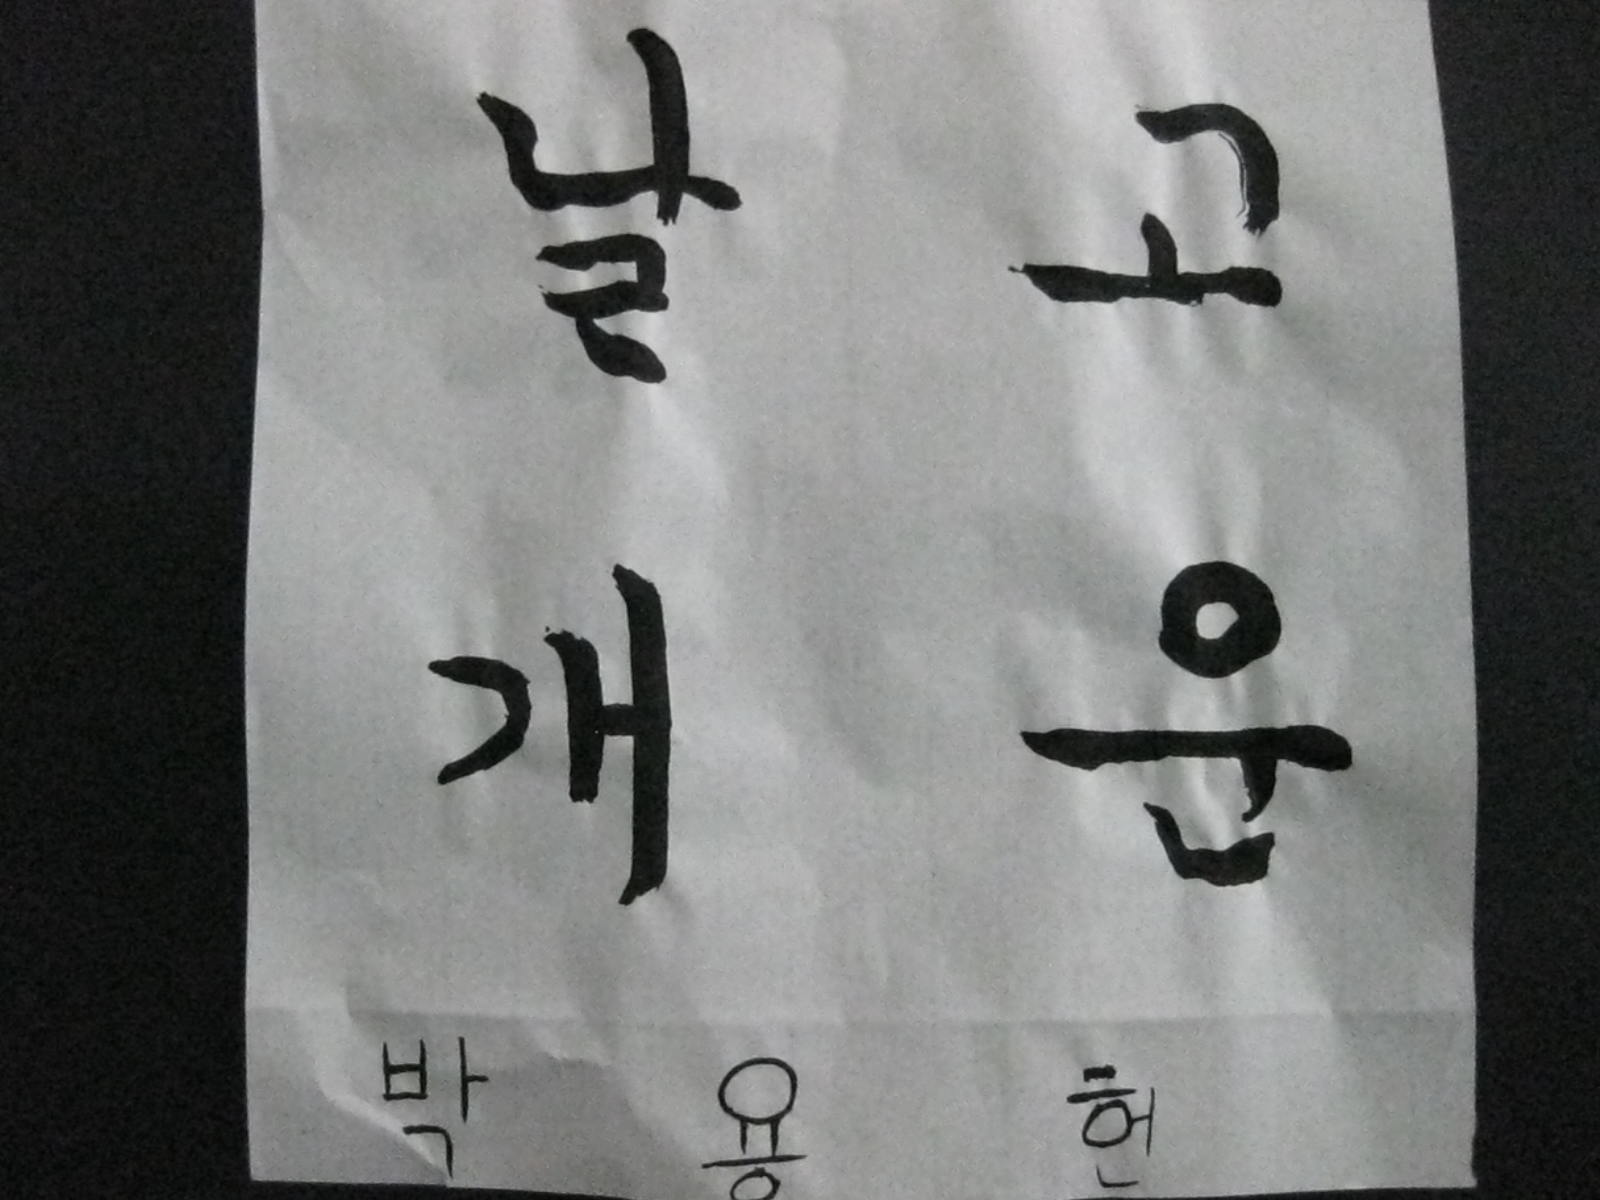 고운
날개
박용헌